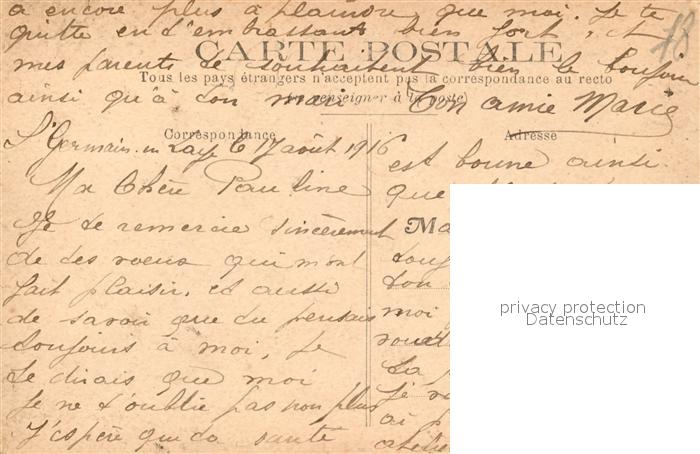 a encore plus à plaindre que moi. Je te
quitte en t'embrassant bien fort, et
mes parents te souhaitent bien le bonjour
ainsi qu'à ton mari Ton amie Marie
18
CARTE POSTALE
Tous les pays étrangers n'acceptent pas la correspondance au recto
(se renseigner à la poste)
Correspondance
St Germain en Laye le 17 août 1916
Ma Chère Pauline
Je te remercie sincèrement
de tes voeux qui m'ont
fait plaisir, et aussi
de savoir que tu pensais
toujours à moi, je
te dirais que moi
je ne t'oublie pas non plus
J'espère que ta santé
Adresse
est bonne ainsi
que
M
touj
ton
moi
La
je
ai p
privacy protection
Datenschutz